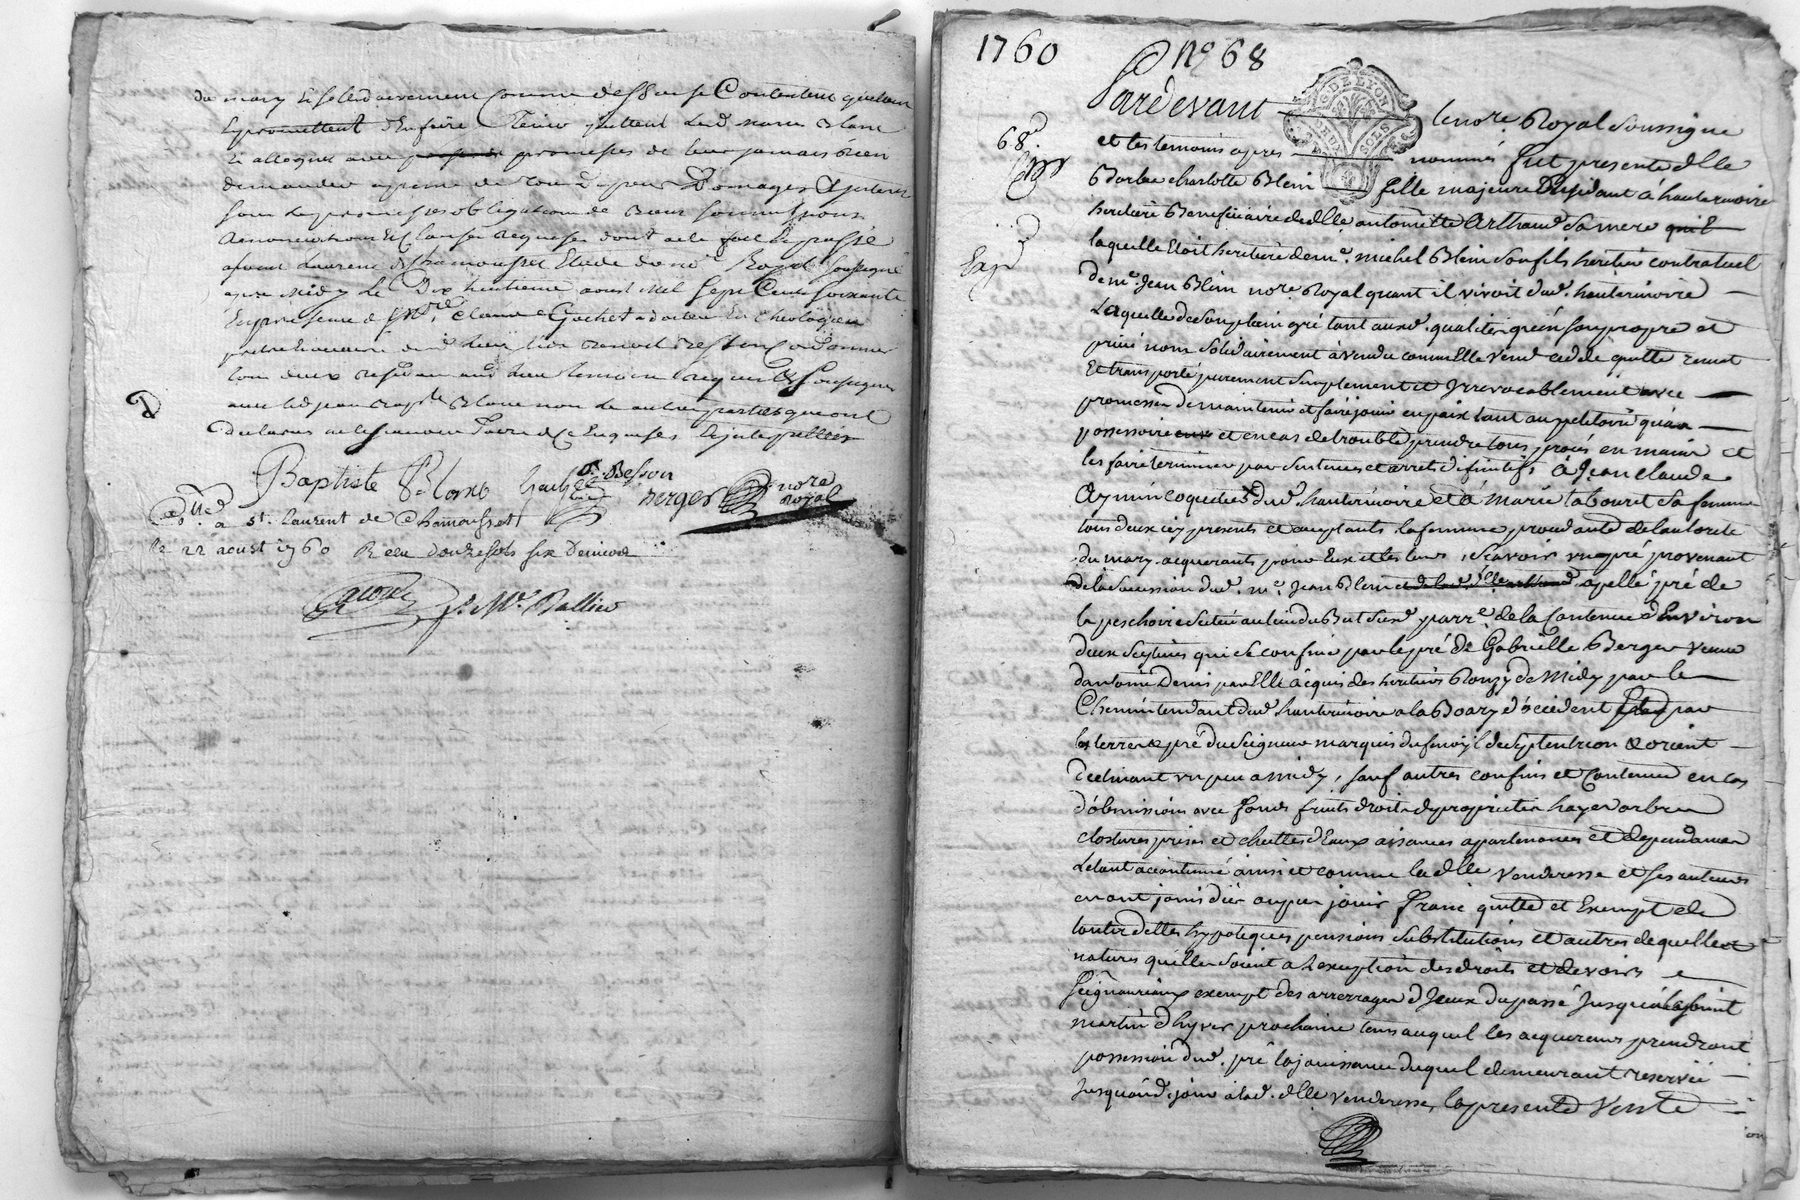 du mary et solidairement comme dessus se Contentent quittent
et promettent Enfaire Tenir quitte led. Blanc
et alleguer avec promesses de leur jamais Rien
demander a peine de tous depens Domages Interets
sous les promesses obligations de Biens soumissions
Renonciations Et Clauses Requises dont acte fait et passé
a saint Laurent de Chamousset Etude du no.re Royal soussigné
apres Midy le Dix huitieme aoust Mil Sept Cents soixante
En presence de Me. Claude Gachet docteur En theologie
pretre
tous deux led. lieu temoins Requis Et soussignés
avec led. jean Baptiste Blanc non les autres parties qui ont
declaré ne le sçavoir faire de ce Enquises Et interpellées
Baptiste Blanc Gachet Besson
Berger no.re Royal
C.llé a St. Laurent de Chamousset
le 22 aoust 1760 Reçu douze sols six Deniers
Ballieu
1760 No 68
Pardevant le no.re Royal soussigné
68.
et les temoins apres nommés fut presente d.lle
Barbe charlotte Blein fille majeure Residant à hauterivoire
heritiere Beneficiaire de d.lle antoinette Arthaud sa mere
laquelle Etoit heritiere de me. michel Blein son fils heritier contratuel
Exp.d
de me. Jean Blein no.re Royal quant il vivoit dud. hauterivoire
Laquelle de son plein gré tant auxd. qualités qu'en son propre et
privé nom solidairement à vendu comme Elle vend cede quitte remet
Et transporte purement simplement et Irrevocablement avec
promesse de maintenir et faire jouir en paix tant au petitoire qu'au
possessoire et en cas de trouble prendre tous procés en main et
les faire terminer par sentences et arrets difinitifs à Jean claude
Aymin coquetier dud. hauterivoire et à marie tabouret sa femme
tous deux icy presents et acceptants la femme procedante de l'autorité
du mary acquerants pour Eux et les leurs, scavoir un pré provenant
de la succession dud. me. Jean Blein apellé pré de
la peschoire situé au lieu du But susd. parr.e de la Contenue d'Environ
deux seytives qui se confine par le pré de Gabrielle Berger veuve
d'antoine Denis par Elle acquis des heritiers Ronzy de Midy par le
Chemin tendant dud. hauterivoire a la Boary d'occident par
les terres & pré du seigneur marquis du fenoyl de septentrion & orient
declinant un peu a midy, sauf autres confins et Contenue en cas
d'obmissions avec fonds fruits droits de proprieté hayes arbres
clostures prises et chuttes d'Eaux aisances appartenances et dependances
Letout accoutumé ainsi et comme lad. d.lle venderesse et ses auteurs
en ont joui du ou peu jouir franc quitte et Exempt de
toutes dettes hypoteques pensions substitutions et autres de quelles
natures qu'elles soient a L'exception des droits et devoirs
seigneuriaux exempt des arrerages d'Iceux du passé jusqu'à la saint
martin d'hyver prochaine tems auquel les acquereurs prendront
possession dud. pré la jouissance duquel demeurant reservée
Jusqu'aud. jour à lad. d.lle venderesse, la presente Vente